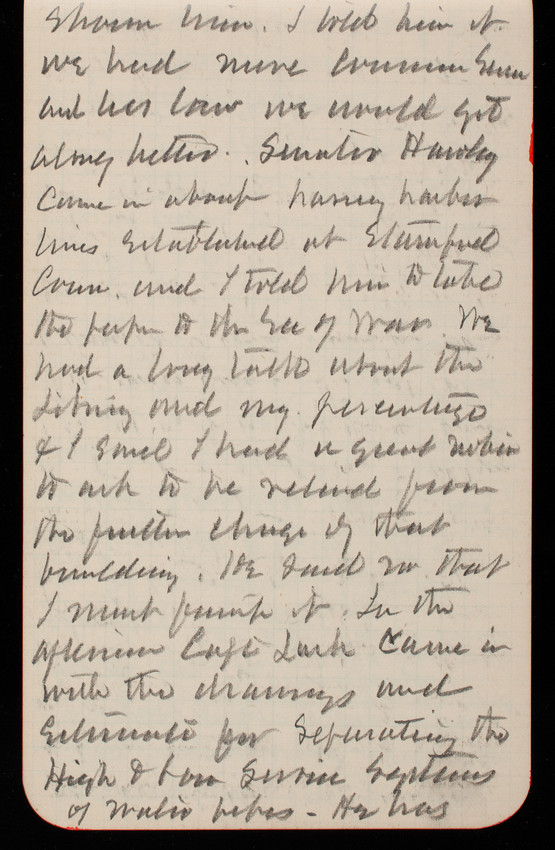 shown him. I told him if
we had more common sense
and less law we would get
along better. Senator Hawley
came in about having harbor
lines established at Stamford
Conn. and I told him to take
the paper to the Sec of War. We
had a long talk about the
Library and my percentage
& I said I had a great notion
to ask to be relieved from
the further charge of that
building. He said no that
I must finish it. In the
afternoon Capt Lusk came in
with the drawings and
Estimate for separating the
High & low service systems
of water pipes - He has